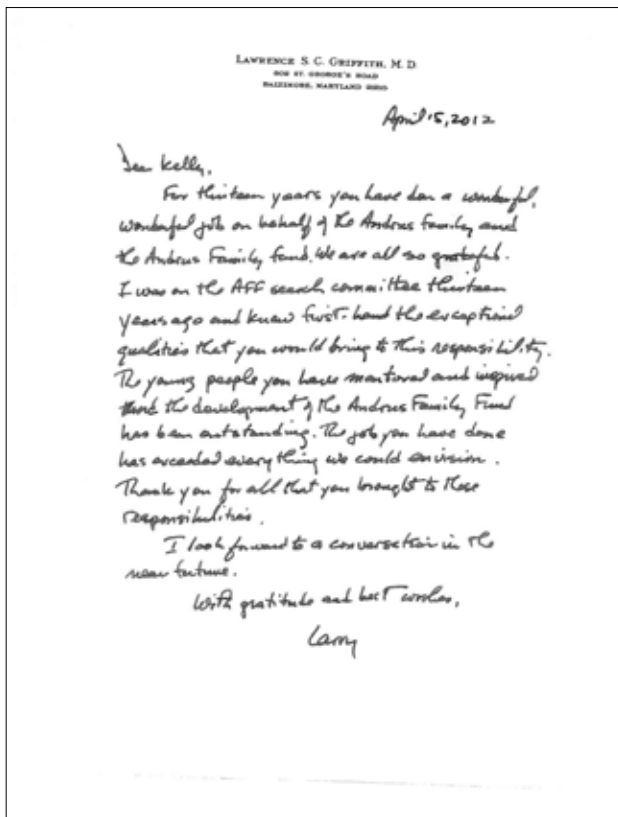 LAWRENCE S. C. GRIFFITH, M. D.
ST. GEORGE'S ROAD
BALTIMORE, MARYLAND
April 15, 2012
Dear Kelly,
For thirteen years you have don a wonderful,
wonderful job on behalf of the Andrus Family and
the Andrus Family Fund. We are all so grateful.
I was on the AFF search committee thirteen
years ago and knew first-hand the exceptional
qualities that you would bring to this responsibility.
The young people you have mentored and inspired
and the development of the Andrus Family Fund
has been outstanding. The job you have done
has exceeded everything we could envision.
Thank you for all that you brought to these
responsibilities.
I look forward to a conversation in the
near future.
With gratitude and best wishes,
Larry